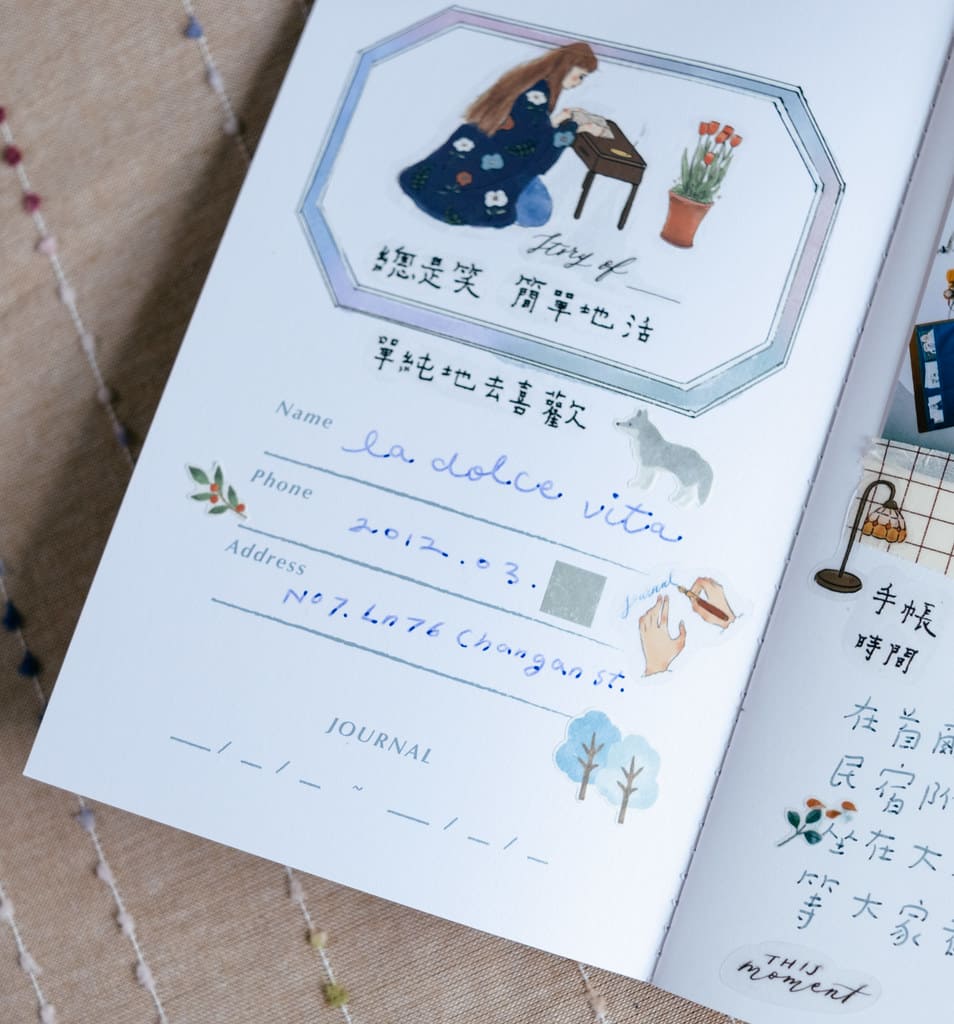 Story of
總是笑 簡單地活
單純地去喜歡
Name la dolce vita
Phone 2012.03.
Address No7. Ln76 Changan st.
Journal
JOURNAL
__/__/__ ~ __/__/__
手帳
時間
在首爾
民宿附
坐在大
等大家
THIS
moment